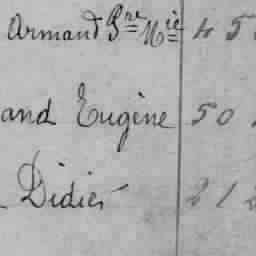 Armand Pre Mie 45
and Eugène 50
Didier 212